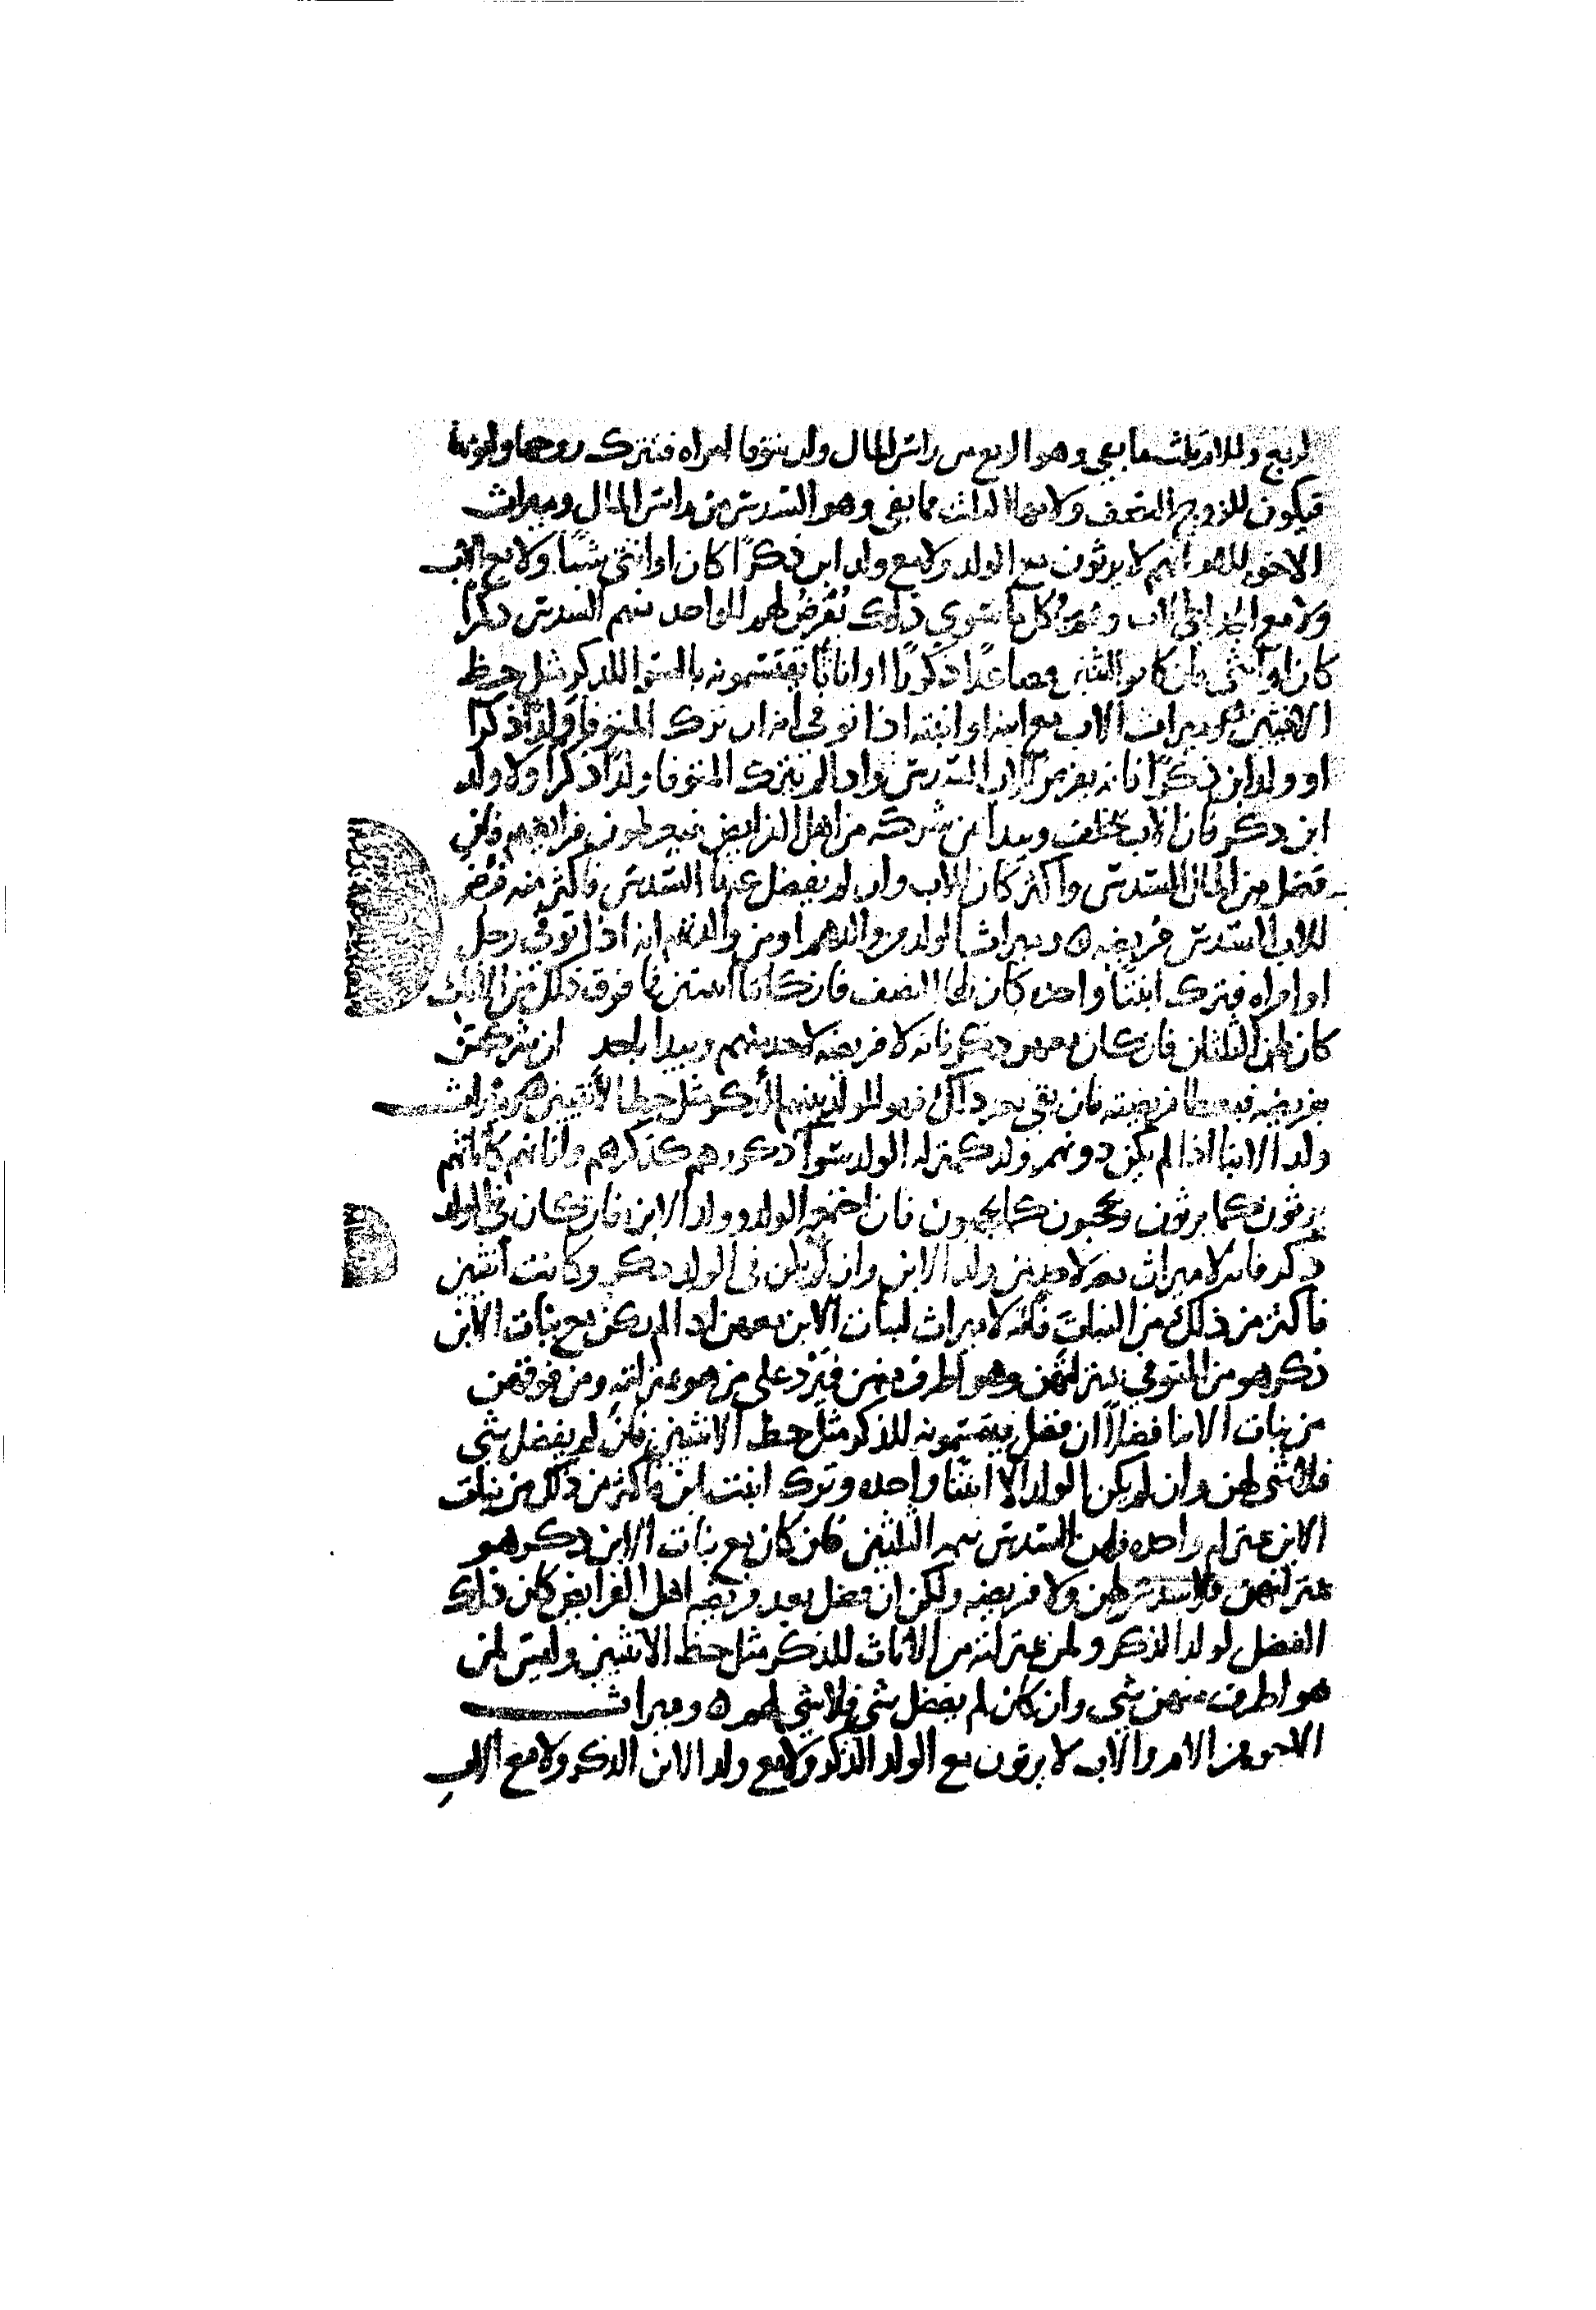 الربع وللام ثلث ما بقي وهو الربع من راس المال وان تتوفا امراه فتترك زوجها وابويها
فيكون للزوج النصف ولامها الثلث مما بقي وهو السدس من راس المال وميراث
الاخوه للام انهم لا يرثون مع الولد ولا مع ولد ابن ذكرًا كان او انثى شيًا ولا مع الاب
ولا مع الجد ابي الاب وهم في كل ما سوي ذلك يُفرض لهم للواحد منهم السدس ذكرا
كان او انثى فان كانوا اثنين فصاعدًا ذكورًا او اناثًا يقتسمونه بالسوا للذكر مثل حظ
الانثيين ه وميراث الاب مع ابنه او ابنته اذا توفي انه ان ترك المتوفا ولدًا ذكرا
او ولد ابن ذكرًا فانه يفرض للاب السدس وان لم يترك المتوفا ولدًا ذكرا ولا ولد
ابن ذكر فان الاب يخلف ويبدا بمن شركه من اهل الفرايض فيعطون فرايضهم فان
فضل من المال السدس واكثر كان للاب وان لم يفضل عنها السدس فاكثر منه فرض
للاب السدس فريضه ه وميراث الولد من والدهم او من والدتهم انه اذا توفي رجل
او امراه فترك ابنتًا واحده كان لها النصف فان كانتا اثنتين فما فوق ذلك من الاناث
كان لهن الثلثان فان كان معهن ذكر فانه لا فريضه لاحد منهم ويبدا باحد ان شركهن
بفريضه فيعطا فريضته فان بقي بعد ذلك فهو للولد بينهم للذكر مثل حظ الانثيين ه وميراث
ولد الابنا اذا لم يكن دونهم ولد كمنزله الولد سوآ ذكورهم كذكرهم واناثهم كاناثهم
يرثون كما يرثون ويحجبون كما يحجبون فان اجتمع الولد وولد الابن فان كان في الولد
ذكر فانه لا ميراث معه لاحد من ولد الابن وان لم يكن في الولد ذكر وكانت اثنتين
فاكثر من ذلك من البنات فانه لا ميراث لبنات الابن معهن اذا لم يكن مع بنات الابن
ذكر هو من المتوفي بمنزلتهن وهو اطرف منهن فيَرُد على من هو بمنزلته ومن فوقهن
من بنات الابنا فضلاً ان فضل يقتسمونه للذكر مثل حظ الانثيين فان لم يفضل شي
فلا شي لهن وان لم يكن الولد الا ابنتًا واحده وترك ابنت ابن فاكثر من ذلك من بنات
الابن بمنزله واحده فلهن السدس تتمه الثلثين فان كان مع بنات الابن ذكر هو
بمنزلتهن فلا سدس لهن ولا فريضه ولكن ان فضل بعد فريضه اهل الفرايض كان ذلك
الفضل لولد الذكر ولمن بمنزلته من الاناث للذكر مثل حظ الانثيين وليس لمن
هو اطرف منهن شي وان كان لم يفضل شي فلا شي لهم ه وميراث
الاخوه من الام والاب لا يرثون مع الولد الذكر ولا مع ولد الابن الذكر ولا مع الاب